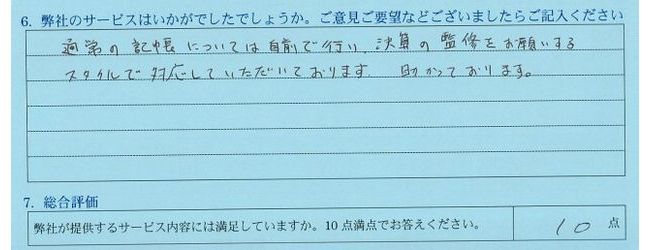 6. 弊社のサービスはいかがでしたでしょうか。ご意見ご要望などございましたらご記入ください
通常の記帳については自前で行い、決算の監修をお願いする
スタイルで対応していただいております。 助かっております。
7. 総合評価
弊社が提供するサービス内容には満足していますか。10点満点でお答えください。 10 点